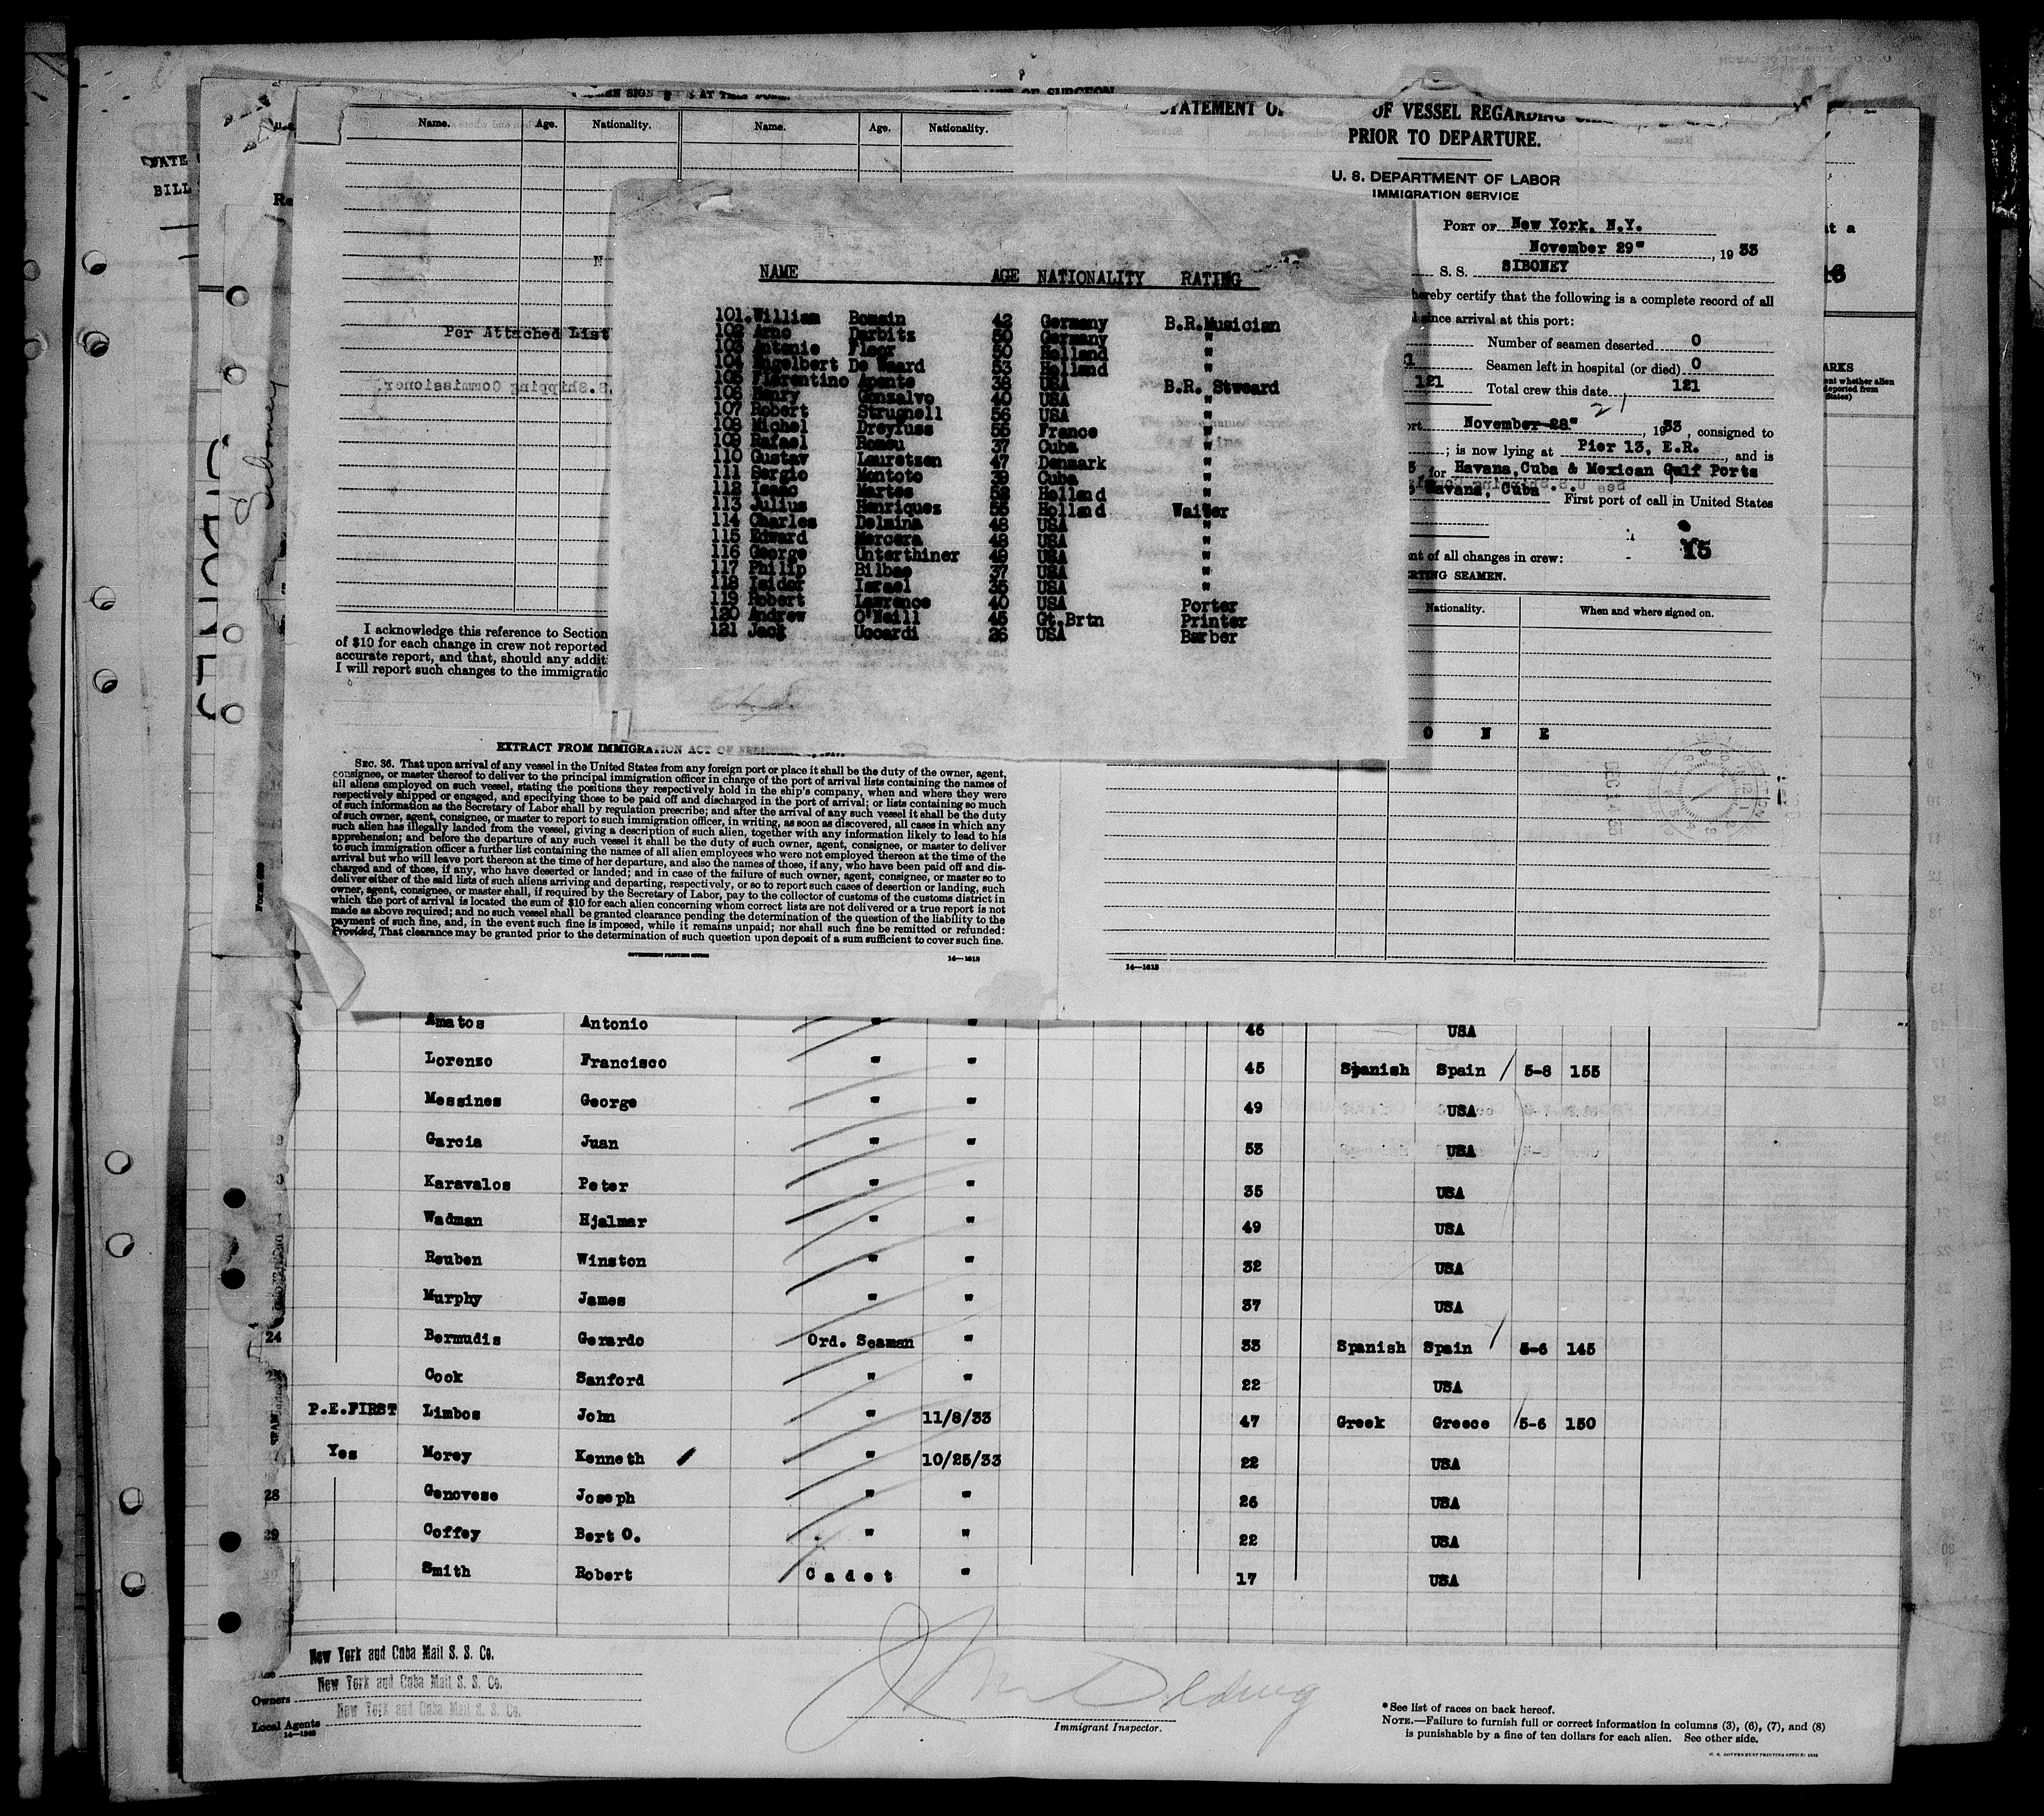 Name. Age. Nationality. Name. Age. Nationality.
Per Attached List
I acknowledge this reference to Section
of $10 for each change in crew not reported
accurate report, and that, should any addit
I will report such changes to the immigratio
EXTRACT FROM IMMIGRATION ACT OF
SEC. 36. That upon arrival of any vessel in the United States from any foreign port or place it shall be the duty of the owner, agent,
consignee, or master thereof to deliver to the principal immigration officer in charge of the port of arrival lists containing the names of
all aliens employed on such vessel, stating the positions they respectively hold in the ship's company, when and where they were
respectively shipped or engaged, and specifying those to be paid off and discharged in the port of arrival; or lists containing so much
of such information as the Secretary of Labor shall by regulation prescribe; and after the arrival of any such vessel it shall be the duty
of such owner, agent, consignee, or master to report to such immigration officer, in writing, as soon as discovered, all cases in which any
such alien has illegally landed from the vessel, giving a description of such alien, together with any information likely to lead to his
apprehension; and before the departure of any such vessel it shall be the duty of such owner, agent, consignee, or master to deliver
to such immigration officer a further list containing the names of all alien employees who were not employed thereon at the time of the
arrival but who will leave port thereon at the time of her departure, and also the names of those, if any, who have been paid off and dis-
charged and of those, if any, who have deserted or landed; and in case of the failure of such owner, agent, consignee, or master so to
deliver either of the said lists of such aliens arriving and departing, respectively, or so to report such cases of desertion or landing, such
owner, agent, consignee, or master shall, if required by the Secretary of Labor, pay to the collector of customs of the customs district in
which the port of arrival is located the sum of $10 for each alien concerning whom correct lists are not delivered or a true report is not
made as above required; and no such vessel shall be granted clearance pending the determination of the question of the liability to the
payment of such fine, and, in the event such fine is imposed, while it remains unpaid; nor shall such fine be remitted or refunded:
Provided, That clearance may be granted prior to the determination of such question upon deposit of a sum sufficient to cover such fine.
GOVERNMENT PRINTING OFFICE 14—1613
NAME AGE NATIONALITY RATING
101. William Bomain 42 Germany B.R.Musician
102 Arno Darbitz 50 Germany "
103 Antonie Floor 50 Holland "
104 Engelbert De Waard 53 Holland "
105 Florentino Aponte 38 USA B.R. Steward
106 Henry Gonzalvo 40 USA "
107 Robert Strugnell 56 USA "
108 Michel Dreyfuss 55 France "
109 Rafael Romeu 37 Cuba "
110 Gustav Lauretzen 47 Denmark "
111 Sergio Montoto 39 Cuba "
112 Isaac Martes 52 Holland "
113 Julius Henriquez 55 Holland Waiter
114 Charles Delmina 48 USA "
115 Edward Mercera 48 USA "
116 George Unterthiner 49 USA "
117 Philip Bilbao 37 USA "
118 Isidor Israel 35 USA "
119 Robert Lawrence 40 USA Porter
120 Andrew O'Neill 45 Gt.Brtn Printer
121 Jack Uccardi 26 USA Barber
STATEMENT OF OF VESSEL REGARDING
PRIOR TO DEPARTURE.
U. S. DEPARTMENT OF LABOR
IMMIGRATION SERVICE
PORT OF New York, N.Y.
November 29" , 1933
S. S. SIBONEY
hereby certify that the following is a complete record of all
since arrival at this port:
Number of seamen deserted 0
Seamen left in hospital (or died) 0
121 Total crew this date 121
21
November 28" , 1933, consigned to
; is now lying at Pier 13, E.R. , and is
for Havana,Cuba & Mexican Gulf Ports
Havana, Cuba First port of call in United States
of all changes in crew:
15
SEAMEN.
Nationality. When and where signed on.
O N E
14—1613
Siboney
SIBONEY
Amatos Antonio " " 46 USA
Lorenzo Francisco " " 45 Spanish Spain 5-8 155
Messines George " " 49 USA
Garcia Juan " " 53 USA
Karavalos Peter " " 35 USA
Wadman Hjalmar " " 49 USA
Reuben Winston " " 32 USA
Murphy James " " 37 USA
24 Bermudis Gerardo Ord. Seaman " 33 Spanish Spain 5-6 145
Cook Sanford " " 22 USA
P.E.FIRST Limbos John " 11/8/33 47 Greek Greece 5-6 150
Yes Morey Kenneth " 10/25/33 22 USA
28 Genovese Joseph " " 26 USA
29 Coffey Bert O. " " 22 USA
Smith Robert Cadet " 17 USA
New York and Cuba Mail S. S. Co.
Owners New York and Cuba Mail S. S. Co.
Local Agents New York and Cuba Mail S. S. Co.
Immigrant Inspector.
* See list of races on back hereof.
NOTE.—Failure to furnish full or correct information in columns (3), (6), (7), and (8)
is punishable by a fine of ten dollars for each alien. See other side.